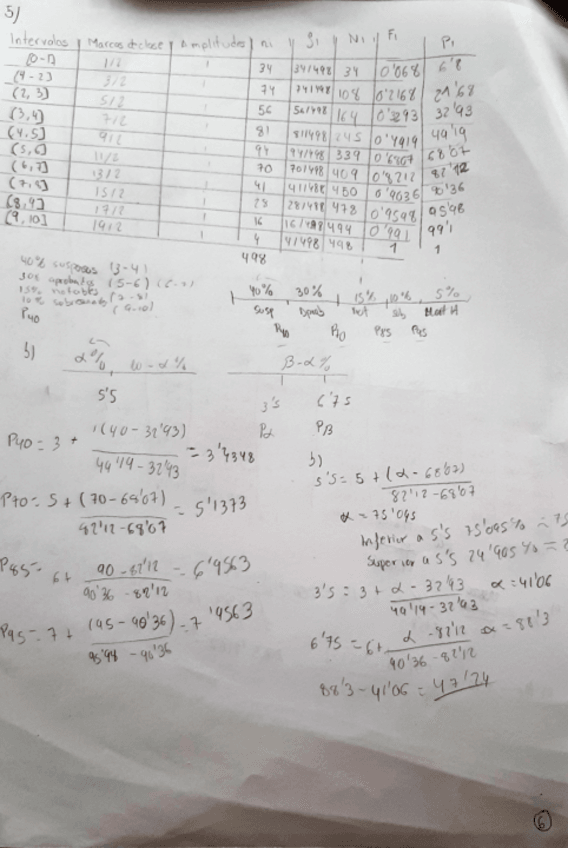 5)
Intervalos Marcas de clase Amplitudes ni fi Ni Fi Pi
[0-1] 1/2 1 34 34/498 34 0'068 6'8
(1-2] 3/2 1 74 74/498 108 0'2168 21'68
(2,3] 5/2 1 56 56/498 164 0'3293 32'93
(3,4] 7/2 1 81 81/498 245 0'4919 49'19
(4,5] 9/2 1 94 94/498 339 0'6807 68'07
(5,6] 11/2 1 70 70/498 409 0'8212 82'12
(6,7] 13/2 1 41 41/498 450 0'9036 90'36
(7,8] 15/2 1 28 28/498 478 0'9598 95'98
(8,9] 17/2 1 16 16/498 494 0'991 99'1
(9,10] 19/2 4 4/498 498 1 1
498
40% suspensos (3-4)
30% aprobados (5-6)
15% notables
10% sobresaliente
(9-10)
P40
40% 30% 15% 10% 5%
Susp Aprob Not Sb Mat H
P40 P70 P85 P95
b) α% 100-α% β-α%
5'5 3'5 6'75
Pα Pβ
P40 = 3 + 1(40-32'93) / 49'19-32'93 = 3'4348
P70 = 5 + (70-68'07) / 82'12-68'07 = 5'1373
P85 = 6 + 90-82'12 / 90'36-82'12 = 6'9563
P95 = 7 + (95-90'36) / 95'98-90'36 = 7'9563
b)
5'5 = 5 + (α-68'07) / 82'12-68'07
α = 75'095
Inferior a 5'5 75'095%
Superior a 5'5 24'905%
3'5 = 3 + α-32'93 / 49'19-32'93 α = 41'06
6'75 = 6 + α-82'12 / 90'36-82'12 α = 88'3
88'3-41'06 = 47'24
6